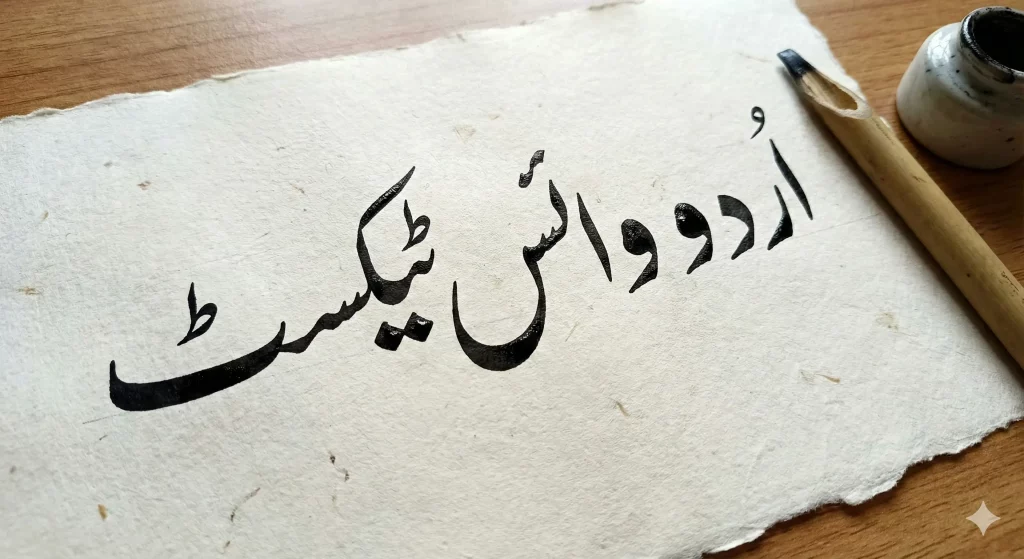 اُردو وائس ٹیکسٹ